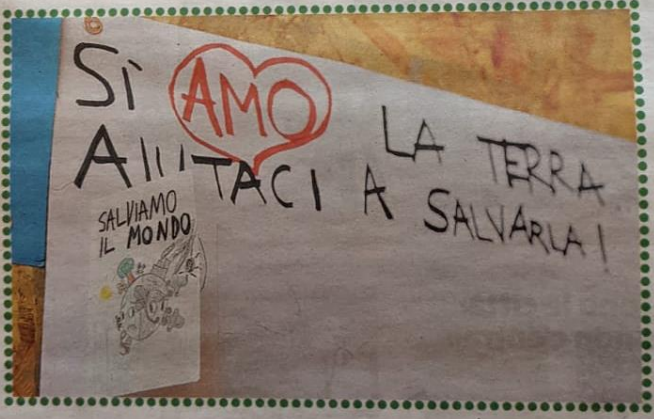 Sì AMO LA TERRA
AIUTACI A SALVARLA!
SALVIAMO
IL MONDO